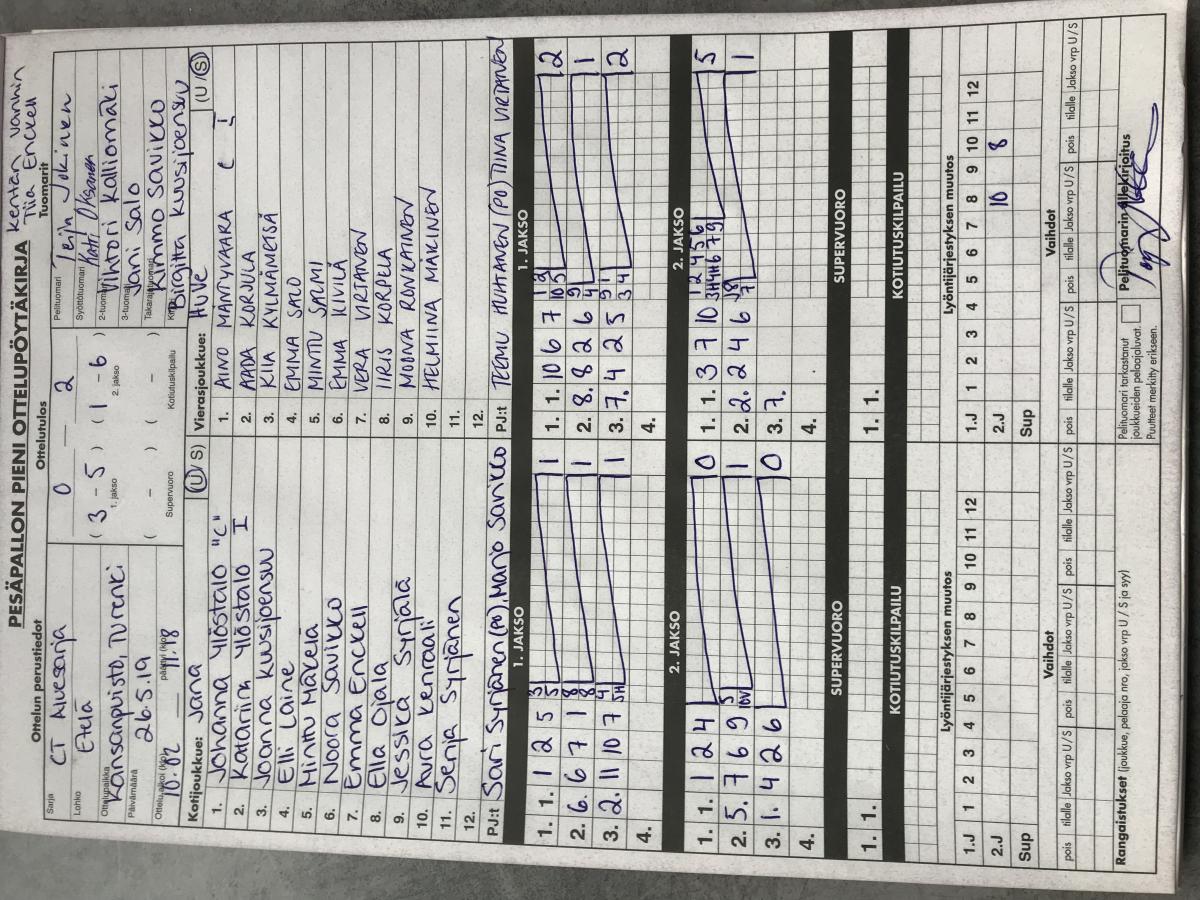 PESÄPALLON PIENI OTTELUPÖYTÄKIRJA
Kentän vanhin
Tiia Enckell
Ottelun perustiedot
Ottelutulos
Tuomarit
Sarja
CT Aluesarja
Lohko
Etelä
Ottelupaikka
Kansanpuisto, Turenki
Päivämäärä
26.5.19
Ottelu alkoi (klo)
10.02
päättyi (klo)
11.18
0 — 2
( 3 - 5 ) ( 1 - 6 )
1. jakso
2. jakso
( - ) ( - )
Supervuoro
Kotiutuskilpailu
Pelituomari
Teijn Jokinen
Syöttötuomari
Matti Oksanen
2-tuomari
Vihtori Kalliomäki
3-tuomari
Jani Salo
Takarajatuomari
Kimmo Savikko
Kirjuri
Birgitta Kuusijoensuu
Kotijoukkue: Jana (U / S)
1. Johanna Ylöstalo "C"
2. Katariina Ylöstalo I
3. Joanna Kuusijoensuu
4. Elli Laine
5. Minttu Mäkelä
6. Noora Savikko
7. Emma Enckell
8. Ella Ojala
9. Jessika Syrjälä
10. Aura Kenraali
11. Senja Syrjänen
12.
PJ:t Sari Syrjänen (PO), Marjo Savikko
Vierasjoukkue: HuVe (U / S)
1. AINO MÄNTYVAARA C
2. AADA KORJULA I
3. KIIA KYLMÄMETSÄ
4. EMMA SALO
5. MINTU SALMI
6. EMMA KIVILÄ
7. VERA VIRTANEN
8. IIRIS KORPELA
9. MOONA RONKAINEN
10. HELMIINA MÄKINEN
11.
12.
PJ:t TEEMU HUHTANEN (PO) TIINA VIRTANEN
1. JAKSO
1. 1. 1 2 5 3 5 1
2. 6. 6 7 1 8 8 1
3. 2. 11 10 7 4 5H 1
4.
1. JAKSO
1. 1. 10 6 7 1 2 10 5 2
2. 8. 8 2 6 9 4 1
3. 7. 4 2 5 9 1 3 4 2
4.
2. JAKSO
1. 1. 1 2 4 0
2. 5. 7 6 9 5 10V 1
3. 1. 4 2 6 0
4.
2. JAKSO
1. 1. 3 7 10 1 2 4 5 6 3H H H 6 7 9 5
2. 2. 2 4 6 8 7 1
3. 7.
4.
SUPERVUORO
1. 1.
SUPERVUORO
1. 1.
KOTIUTUSKILPAILU
KOTIUTUSKILPAILU
Lyöntijärjestyksen muutos
1.J 1 2 3 4 5 6 7 8 9 10 11 12
2.J
Sup
Lyöntijärjestyksen muutos
1.J 1 2 3 4 5 6 7 8 9 10 11 12
2.J 10 8
Sup
Vaihdot
pois tilalle Jakso vrp U / S pois tilalle Jakso vrp U / S pois tilalle Jakso vrp U / S
Vaihdot
pois tilalle Jakso vrp U / S pois tilalle Jakso vrp U / S pois tilalle Jakso vrp U / S
Rangaistukset (joukkue, pelaaja nro, jakso vrp U / S ja syy)
Pelituomari tarkastanut
joukkueiden pelaajaluvat.
Puutteet merkitty erikseen.
Pelituomarin allekirjoitus